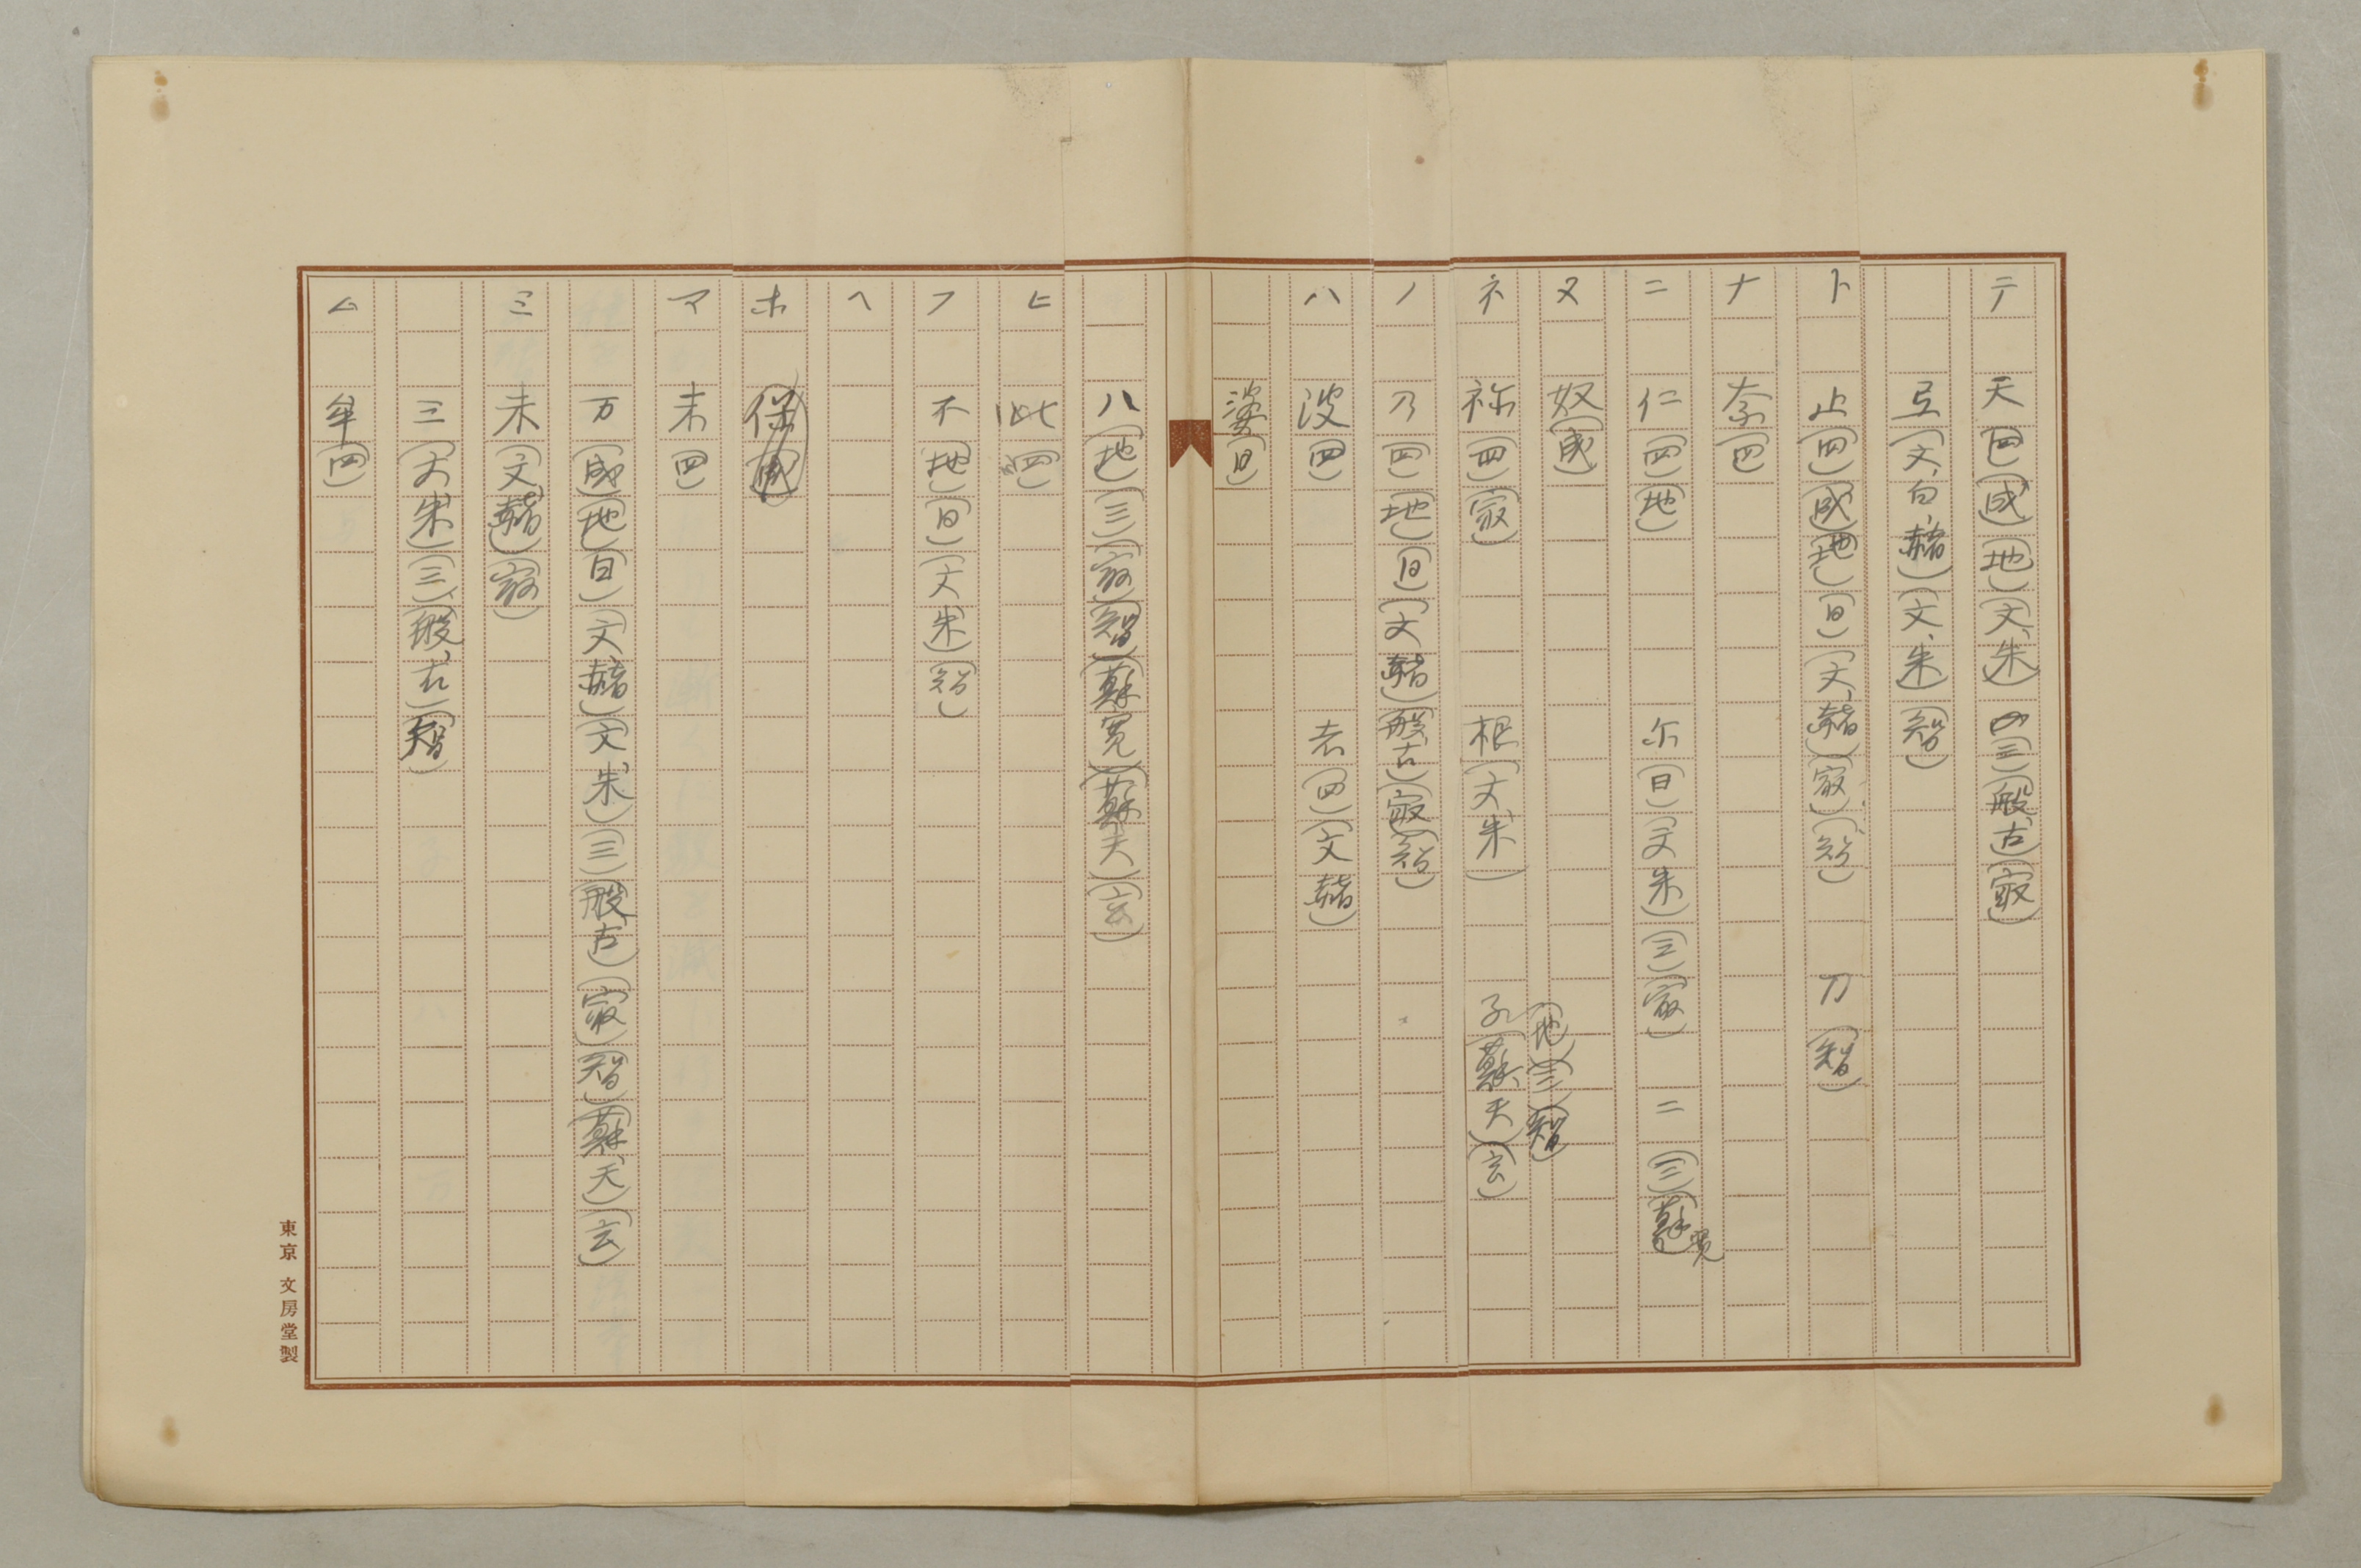 テ 天(四)(成)(地)(文、朱) (三)(般、古)(寂)
弖(文、白、赭)(文、朱)(智)
ト 止(四)(成)(地)(日)(文、赭)(寂)(智) 刀(智)
ナ 奈(四)
ニ 仁(四)(地) 尓(日)(文朱)(三)(寂) 二(三)(蘇寛)
ヌ 奴(成)
ネ 祢(四)(寂) 根(文、朱) 子(蘇、天)(玄)
(地)(三)(智)
ノ 乃(四)(地)(日)(文、赭)(般、古)(寂)(智)
ハ 波(四) 者(四)(文、赭)
婆(日)
八(地)(三)(寂)(智)(蘇寛)(蘇天)(玄)
ヒ 比(四)
フ 不(地)(日)(文朱)(智)
ヘ
ホ 保(成)
マ 末(四)
万(成)(地)(白)(文、赭)(文、朱)(三)(般、古)(寂)(智)(蘇、天)(玄)
ミ 未(文、赭)(寂)
三(文、朱)(三)(般、古)(智)
ム 牟(四)
東京 文房堂製